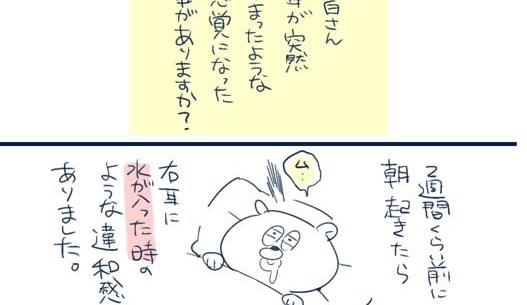 さん
が突然
まったような
覚になった
がありますか?
2週間くらい前に
朝起きたら
ム…
右耳に
水が入った時の
ような違和感
ありました。